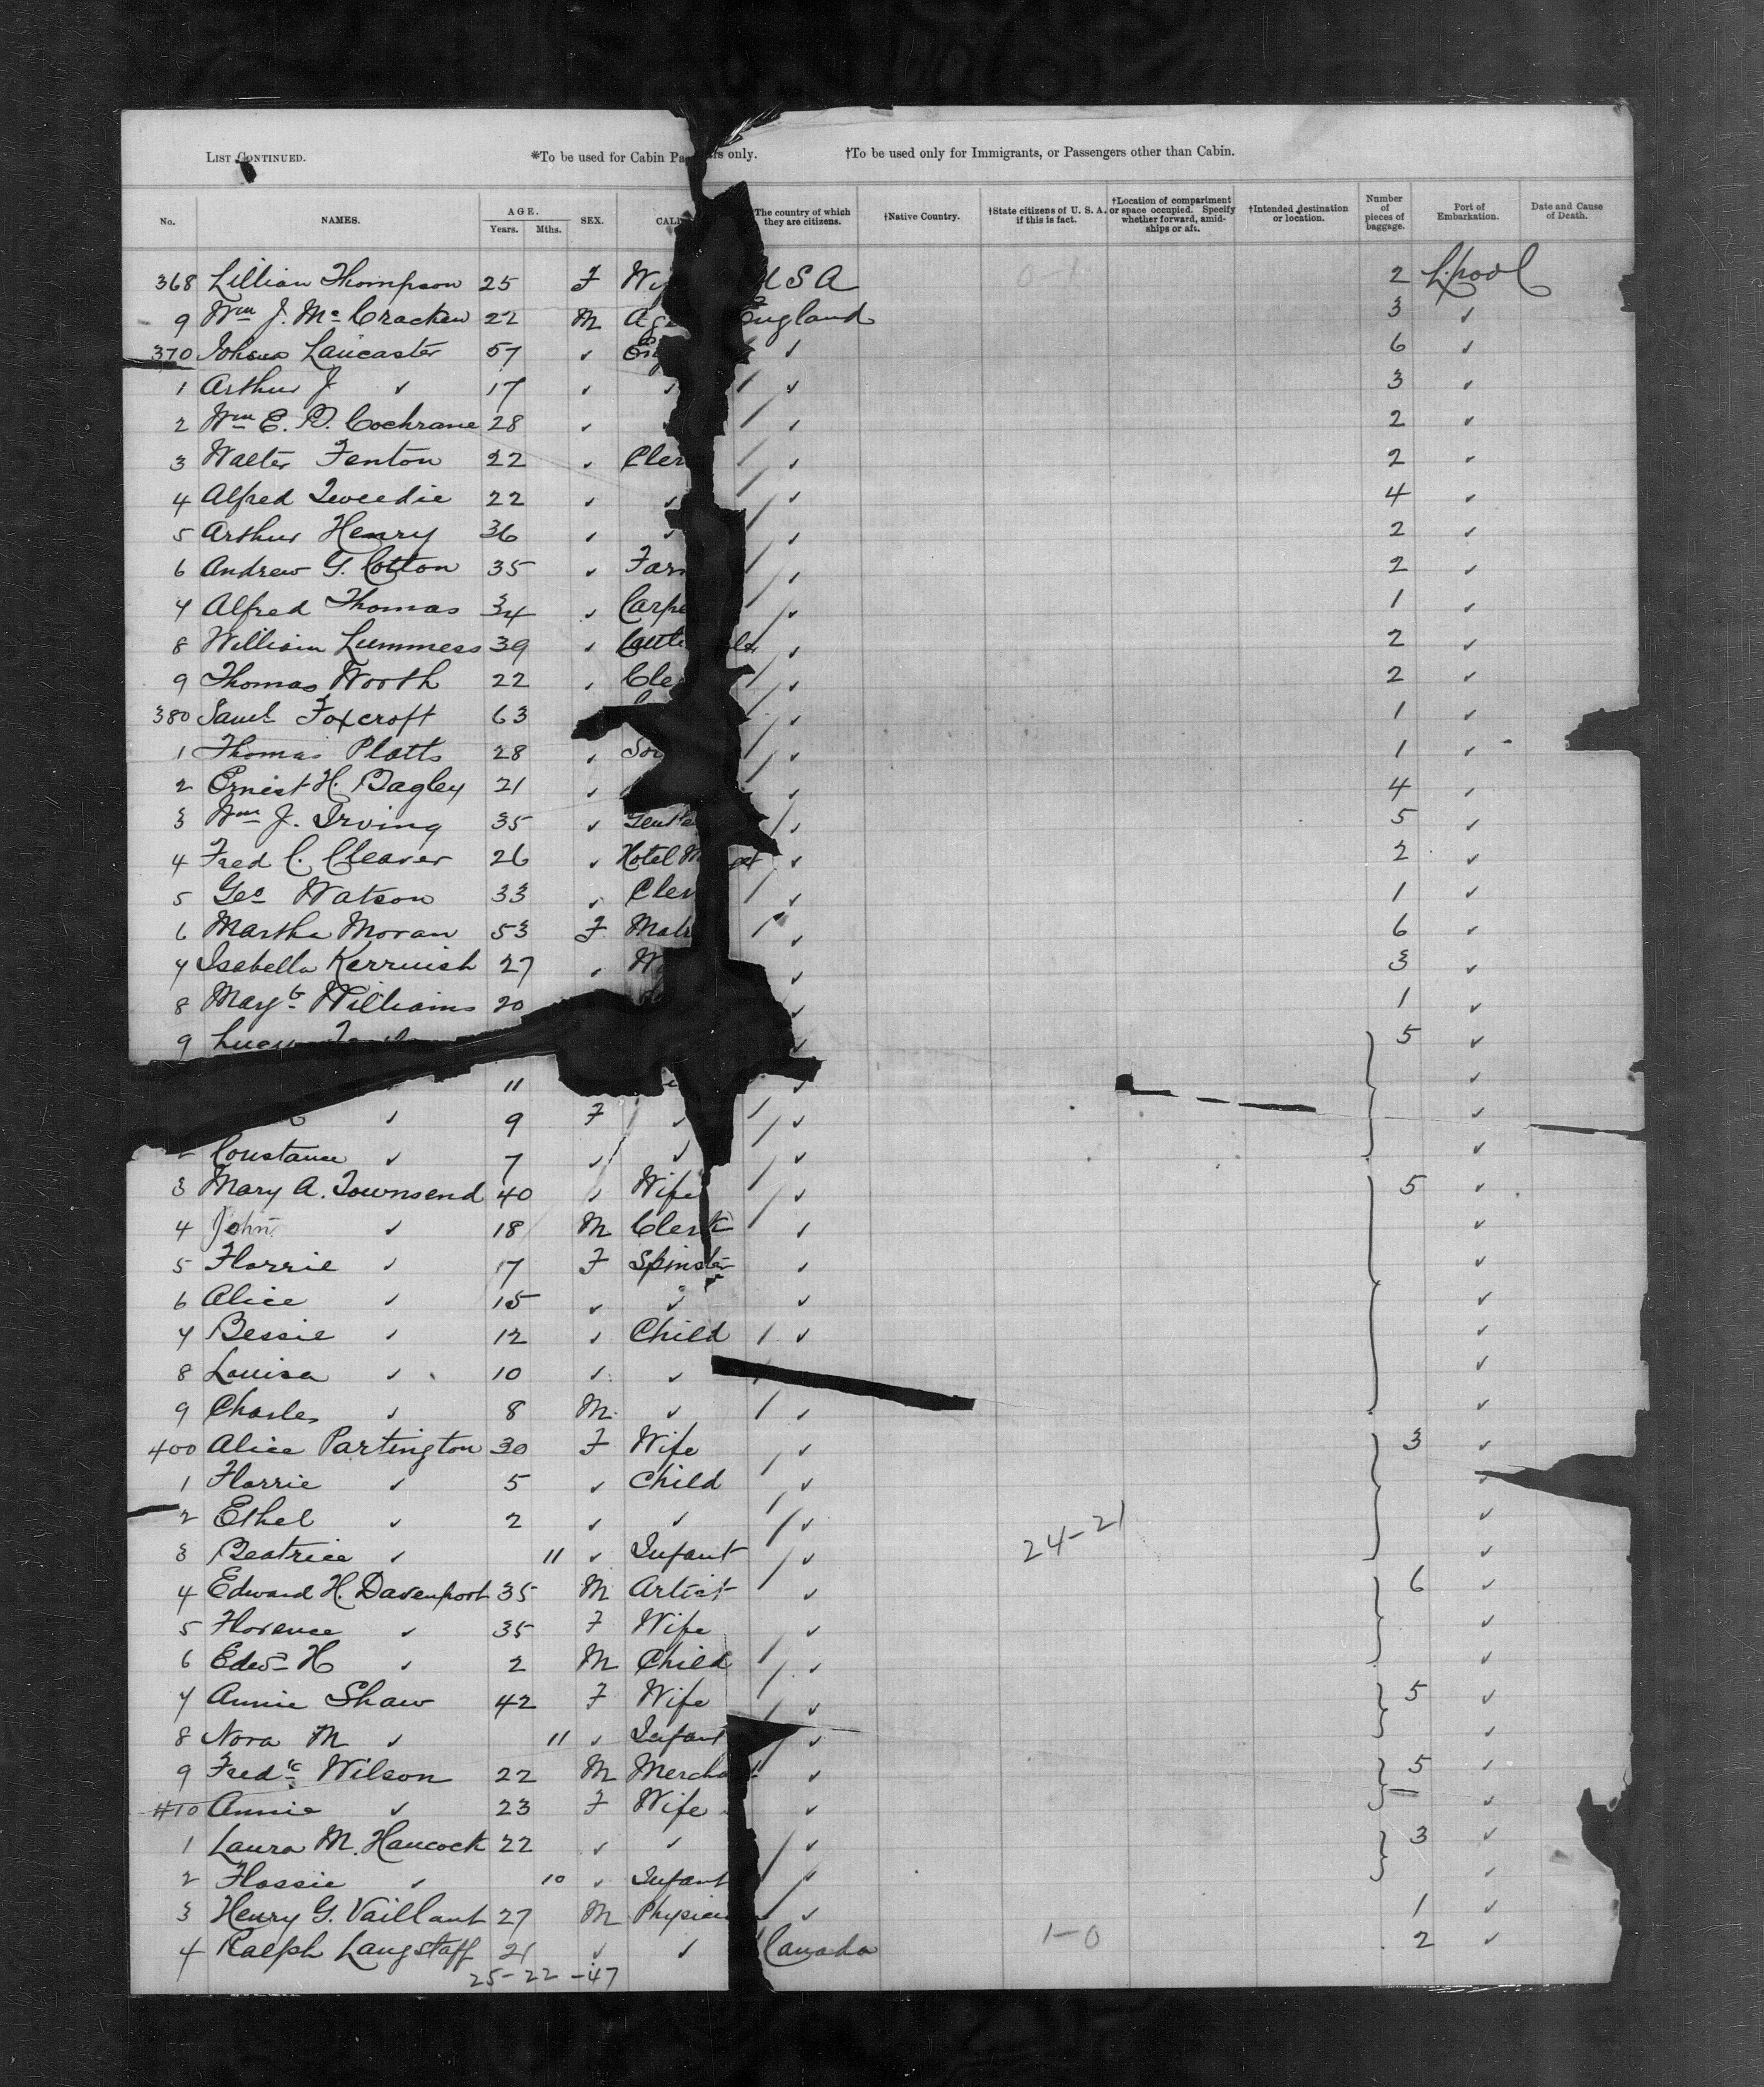 LIST CONTINUED. *To be used for Cabin Pa rs only. †To be used only for Immigrants, or Passengers other than Cabin.
No. NAMES. AGE. Years. Mths. SEX. CALL The country of which they are citizens. †Native Country. †State citizens of U. S. A. if this is fact. †Location of compartment or space occupied. Specify whether forward, amidships or aft. †Intended destination or location. Number of pieces of baggage. Port of Embarkation. Date and Cause of Death.
368 Lillian Thompson 25 F Wif U S A 0-1 2 L.pool
9 Wm J. Mc Cracken 22 M Age England 3 ✓
370 Lancaster 57 ✓ ✓ 6 ✓
1 Arthur J ✓ 17 ✓ ✓ / ✓ 3 ✓
2 Wm E. D. Cochrane 28 ✓ / ✓ 2 ✓
3 Walter Fenton 22 ✓ Cler / ✓ 2 ✓
4 Alfred Tweedie 22 ✓ ✓ / ✓ 4 ✓
5 Arthur Henry 36 ✓ ✓ / ✓ 2 ✓
6 Andrew G. Cotton 35 ✓ Farm / ✓ 2 ✓
7 Alfred Thomas 34 ✓ Carpe / ✓ 1 ✓
8 William Lummess 39 ✓ ✓ 2 ✓
9 Thomas Worth 22 ✓ Cle / ✓ 2 ✓
380 Saml Foxcroft 63 / ✓ 1 ✓
1 Thomas Platts 28 ✓ / ✓ 1 ✓
2 Ernest H. Bagley 21 ✓ / ✓ 4 ✓
3 Wm J. Irving 35 ✓ Gentle / ✓ 5 ✓
4 Fred C. Cleaver 26 ✓ Hotel M ✓ 2 ✓
5 Geo Watson 33 ✓ Cler / ✓ 1 ✓
6 Martha Moran 53 F Matr / ✓ 6 ✓
7 Isabella Kerruish 27 ✓ W ✓ 3 ✓
8 Margt Williams 20 ✓ 1 ✓
9 Lucy ✓ 5 ✓
11 ✓ ✓
✓ 9 F ✓ / ✓ ✓
Constance ✓ 7 ✓ ✓ / ✓ ✓
3 Mary A. Townsend 40 ✓ Wife / ✓ 5 ✓
4 John ✓ 18 M Clerk / ✓ ✓
5 Florrie ✓ 17 F Spinster ✓ ✓
6 Alice ✓ 15 ✓ ✓ ✓ ✓
7 Bessie ✓ 12 ✓ Child / ✓ ✓
8 Louisa ✓ 10 ✓ ✓ ✓
9 Charles ✓ 8 M ✓ / ✓ ✓
400 Alice Partington 30 F Wife / ✓ 3 ✓
1 Florrie ✓ 5 ✓ Child / ✓ ✓
2 Ethel ✓ 2 ✓ ✓ / ✓ ✓
24-21
3 Beatrice ✓ 11 ✓ Infant / ✓ ✓
4 Edward H. Davenport 35 M Artist / ✓ 6 ✓
5 Florence ✓ 35 F Wife ✓ ✓
6 Edwd H ✓ 2 M Child / ✓ ✓
7 Annie Shaw 42 F Wife / ✓ 5 ✓
8 Nora M ✓ 11 ✓ Infant / ✓ ✓
9 Fredc Wilson 22 M Mercha t ✓ 5 ✓
410 Annie ✓ 23 F Wife ✓ ✓
1 Laura M. Hancock 22 ✓ ✓ / ✓ 3 ✓
2 Flossie ✓ 10 ✓ Infant / ✓ ✓
3 Henry G. Vaillant 27 M Physici ✓ 1 ✓
4 Ralph Langstaff 21 ✓ ✓ Canada 1-0 2 ✓
25-22-47